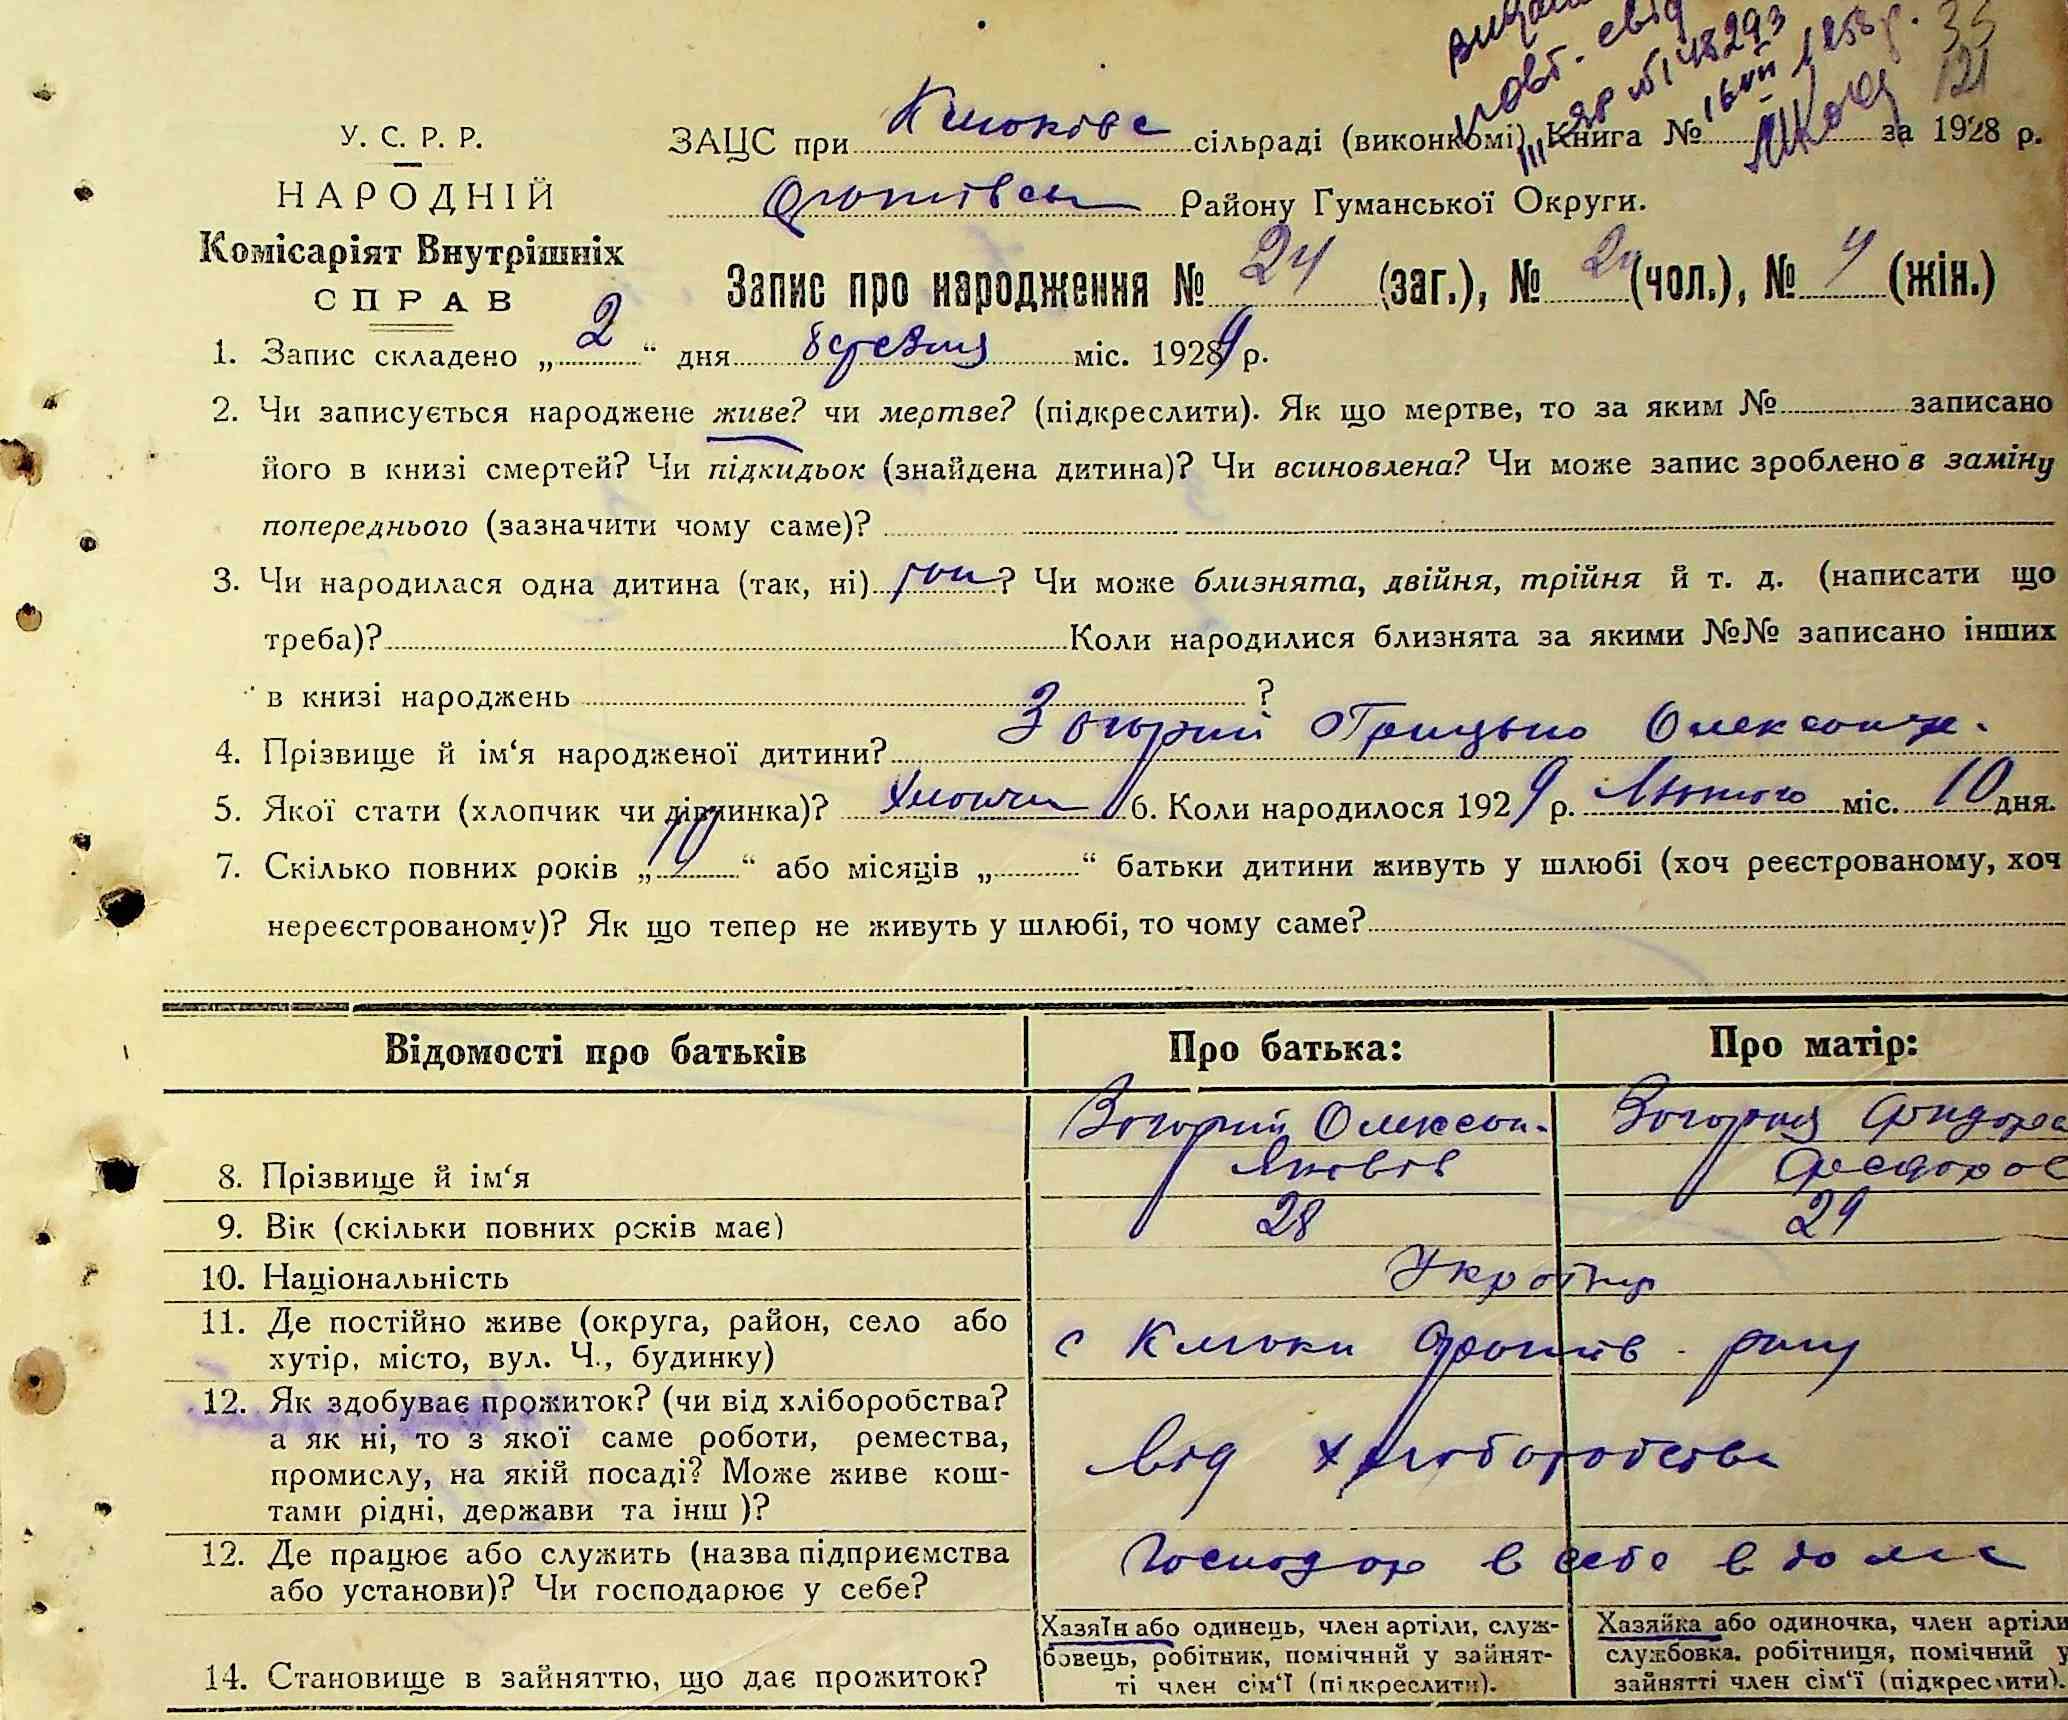 повт. свід
35
121
У. С. Р. Р.
НАРОДНІЙ
Комісаріят Внутрішніх
СПРАВ
ЗАЦС при сільраді (виконкомі) Книга № за 1928 р.
Району Гуманської Округи.
Запис про народження № 24 (заг.), № (чол.), № (жін.)
1. Запис складено „2“ дня березня міс. 1929 р.
2. Чи записується народжене живе? чи мертве? (підкреслити). Як що мертве, то за яким № записано
його в книзі смертей? Чи підкидьок (знайдена дитина)? Чи всиновлена? Чи може запис зроблено в заміну
попереднього (зазначити чому саме)?
3. Чи народилася одна дитина (так, ні) так? Чи може близнята, двійня, трійня й т. д. (написати що
треба)? Коли народилися близнята за якими №№ записано інших
в книзі народжень ?
4. Прізвище й ім‘я народженої дитини? Загорій Грицько Олексан.
5. Якої стати (хлопчик чи дівчинка)? хлопчик 6. Коли народилося 1929 р. Лютого міс. 10 дня.
7. Скілько повних років „10“ або місяців „ “ батьки дитини живуть у шлюбі (хоч реєстрованому, хоч
нереєстрованому)? Як що тепер не живуть у шлюбі, то чому саме?
Відомості про батьків Про батька: Про матір:
Загорій Олексан.
8. Прізвище й ім‘я Яковів
9. Вік (скільки повних років має) 28 29
10. Національність Україн
11. Де постійно живе (округа, район, село або
хутір, місто, вул. Ч., будинку) с Клюки рай
12. Як здобуває прожиток? (чи від хліборобства?
а як ні, то з якої саме роботи, ремества,
промислу, на якій посаді? Може живе кош-
тами рідні, держави та інш )? від хліборобства
12. Де працює або служить (назва підприємства
або установи)? Чи господарює у себе? Господар в себе в дома
14. Становище в зайняттю, що дає прожиток?
Хазяїн або одинець, член артіли, служ-
бовець, робітник, помічний у зайнят-
ті член сім‘ї (підкреслити).
Хазяйка або одиночка, член артіли
службовка. робітниця, помічний у
зайнятті член сім‘ї (підкреслити).